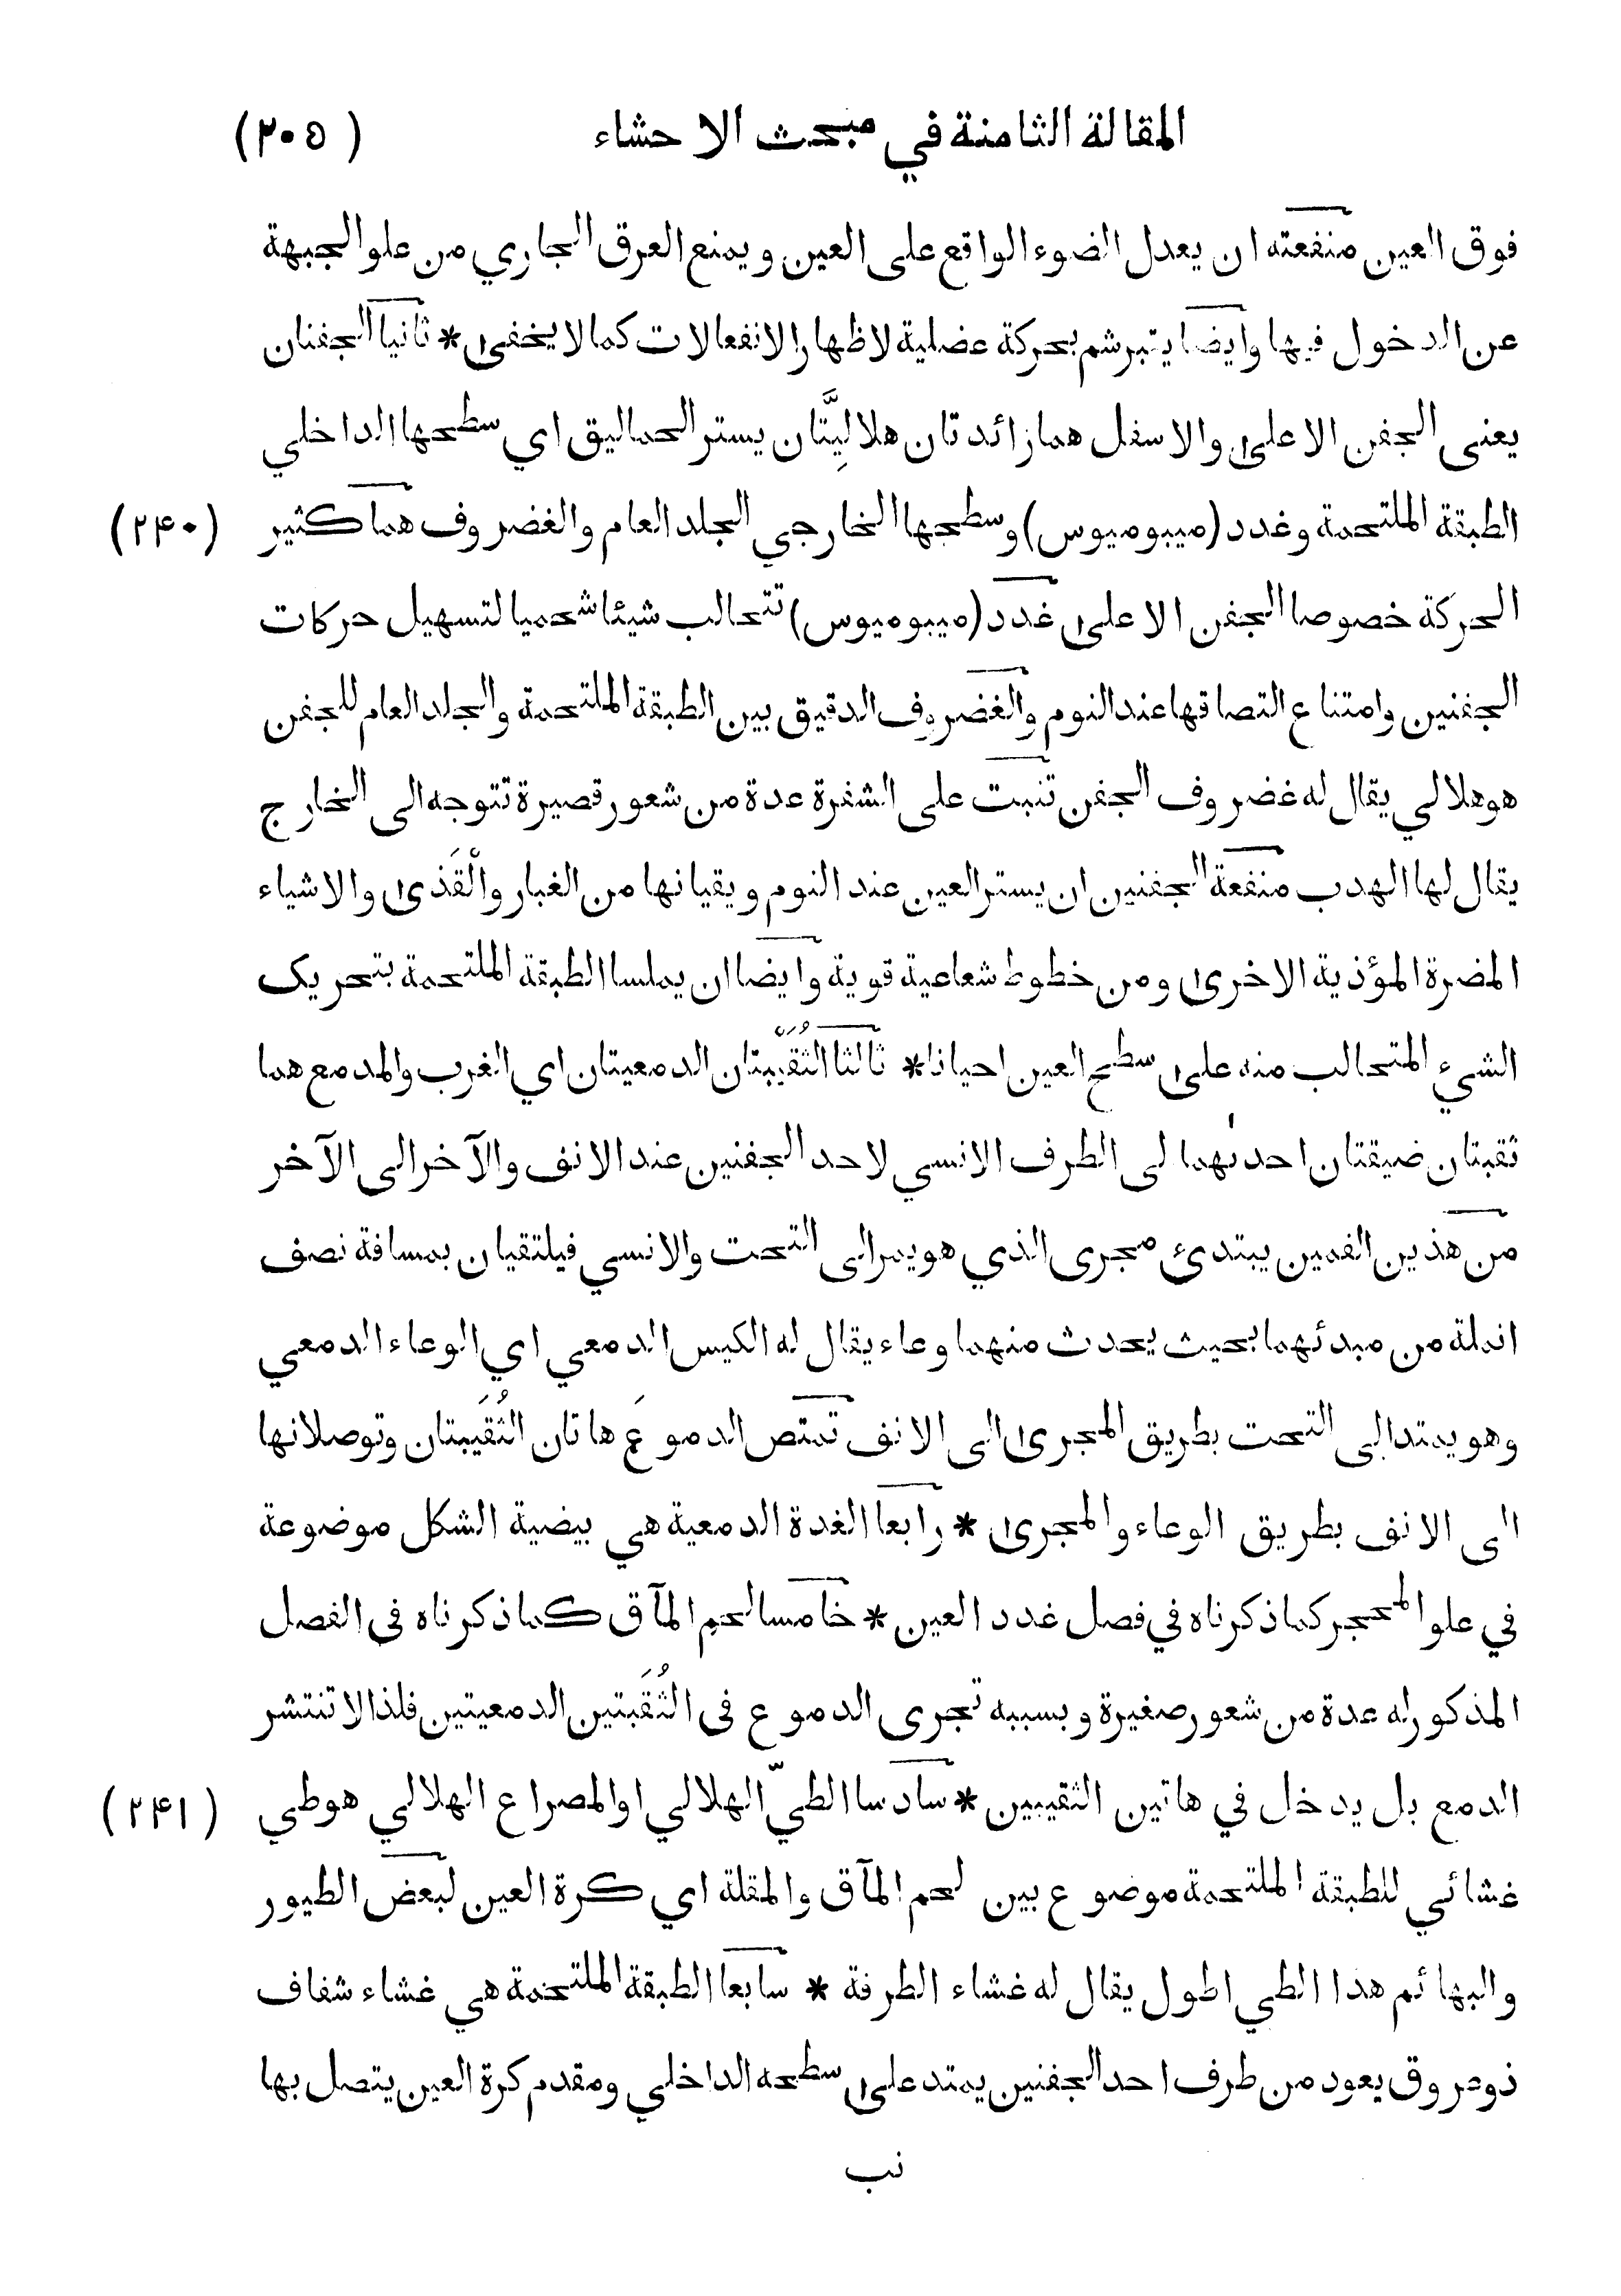 المقالة الثامنة في مبحث الاحشاء (٢٠٥)
فوق العين منفعته ان يعدل الضوء الواقع على العين ويمنع العرق الجاري من علو الجبهة
عن الدخول فيها وايضا يتبرشم بحركة عضلية لاظهار الانفعالات كما لا يخفى * ثانيا الجفنان
يعنى الجفن الاعلى والاسفل هما زائدتان هلالِيَّتان يستر الحماليق اي سطحها الداخلي
الطبقة الملتحمة وغدد (ميبوميوس) وسطحها الخارجي الجلد العام والغضروف هما كثير (٢٤٠)
الحركة خصوصا الجفن الاعلى غدد (ميبوميوس) تتحالب شيئا شحميا لتسهيل حركات
الجفنين وامتناع التصاقها عند النوم والغضروف الدقيق بين الطبقة الملتحمة والجلد العام للجفن
هو هلالي يقال له غضروف الجفن تنبت على الشفرة عدة من شعور قصيرة تتوجه الى الخارج
يقال لها الهدب منفعة الجفنين ان يستر العين عند النوم ويقيانها من الغبار والْقَذى والاشياء
المضرة المؤذية الاخرى ومن خطوط شعاعية قوية وايضا ان يملسا الطبقة الملتحمة بتحريك
الشيء المتحالب منه على سطح العين احيانا * ثالثا الثُقَيبتان الدمعيتان اي الغرب والمدمع هما
ثقبتان ضيقتان احدٰهما لى الطرف الانسي لاحد الجفنين عند الانف والآخر الى الآخر
من هذين الفمين يبتدئ مجرى الذي هو يمر الى التحت والانسي فيلتقيان بمسافة نصف
انملة من مبدئهما بحيث يحدث منهما وعاء يقال له الكيس الدمعي اي الوعاء الدمعي
وهو يمتد الى التحت بطريق المجرى الى الانف تمتص الدموعَ هاتان الثُقَيبتان وتوصلانها
الى الانف بطريق الوعاء والمجرى * رابعا الغدة الدمعية هي بيضية الشكل موضوعة
في علو المحجر كما ذكرناه في فصل غدد العين * خامسا لحم المآق كما ذكرناه فى الفصل
المذكور له عدة من شعور صغيرة وبسببه تجرى الدموع فى الثُقَبتين الدمعيتين فلذا لا تنتشر
الدمع بل يدخل في هاتين الثقيبين * سادسا الطيّ الهلالي او المصراع الهلالي هو طي (٢٤١)
غشائي للطبقة الملتحمة موضوع بين لحم المآق والمقلة اي كرة العين لبعض الطيور
والبهائم هذا الطي اطول يقال له غشاء الطرفة * سابعا الطبقة الملتحمة هي غشاء شفاف
ذو عروق يعود من طرف احد الجفنين يمتد على سطحه الداخلي ومقدم كرة العين يتصل بها
نب